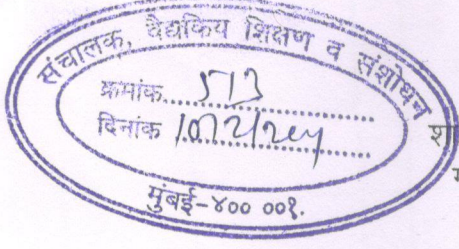 संचालक, वैद्यकिय शिक्षण व संशोधन
क्रमांक.....513.....
दिनांक
मुंबई-४०० ००१.